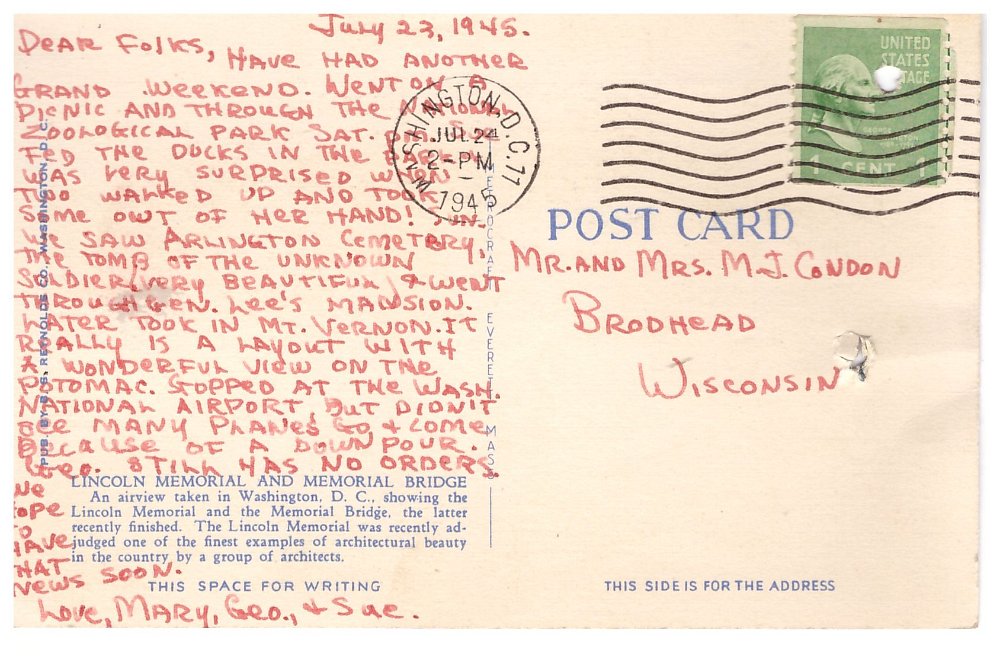 July 23, 1945.
DEAR FOLKS,
HAVE HAD ANOTHER
GRAND WEEKEND. WENT ON A
PICNIC AND THROUGH THE NATIONAL
ZOOLOGICAL PARK SAT. P.M. SUE
FED THE DUCKS IN THE PARK
WAS VERY SURPRISED WHEN
TWO WALKED UP AND TOOK
SOME OWT OF HER HAND! SUN.
WE SAW ARLINGTON CEMETERY,
THE TOMB OF THE UNKNOWN
SOLDIER (VERY BEAUTIFUL) & WENT
THROUGH GEN. LEE'S MANSION.
LATER TOOK IN MT. VERNON. IT
REALLY IS A LAYOUT WITH
A WONDERFUL VIEW ON THE
POTOMAC. STOPPED AT THE WASH.
NATIONAL AIRPORT, BUT DIDN'T
SEE MANY PLANES GO & COME
BECAUSE OF A DOWNPOUR.
GEO. STILL HAS NO ORDERS.
WE
HOPE
TO
HAVE
THAT
NEWS SOON.
Love, MARY, GEO., & SUE.
LINCOLN MEMORIAL AND MEMORIAL BRIDGE
An airview taken in Washington, D. C., showing the
Lincoln Memorial and the Memorial Bridge, the latter
recently finished. The Lincoln Memorial was recently ad-
judged one of the finest examples of architectural beauty
in the country by a group of architects.
THIS SPACE FOR WRITING
PUB. BY B. S. REYNOLDS CO., WASHINGTON, D. C.
EVERETT MASS
WASHINGTON, D.C. 11
JUL 24
2-PM
1945
UNITED
STATES
POSTAGE
1 CENT 1
POST CARD
MR. AND MRS. M. J. CONDON
BRODHEAD
WISCONSIN
THIS SIDE IS FOR THE ADDRESS